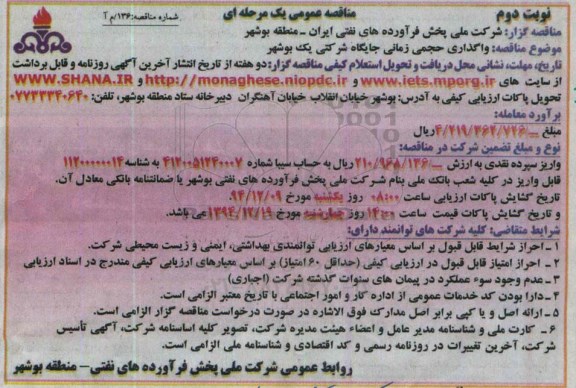 نوبت دوم
مناقصه عمومی یک مرحله ای
شماره مناقصه: ۱۳۶/م آ
مناقصه گزار: شرکت ملی پخش فرآورده های نفتی ایران - منطقه بوشهر
موضوع مناقصه: واگذاری حجمی زمانی جایگاه شرکتی یک بوشهر
تاریخ، مهلت، نشانی محل دریافت و تحویل استعلام کیفی مناقصه گزار: دو هفته از تاریخ انتشار آخرین آگهی روزنامه و قابل برداشت
از سایت های www.iets.mporg.ir و http://monaghese.niopdc.ir و WWW.SHANA.IR
تحویل پاکات ارزیابی کیفی به آدرس: بوشهر خیابان انقلاب خیابان آهنگران دبیرخانه ستاد منطقه بوشهر، تلفن: ۰۷۷۳۳۳۴۰۶۴۰
برآورد معامله:
مبلغ ــ/۴/۲۱۹/۳۶۲/۷۲۶ریال
نوع و مبلغ تضمین شرکت در مناقصه:
واریز سپرده نقدی به ارزش ــ/۲۱۰/۹۶۸/۱۳۶ ریال به حساب سیبا شماره ۴۱۲۰۰۵۱۲۴۰۰۰۷ به شناسه ۱۱۲۰۰۰۰۰۰۱۴
قابل واریز در کلیه شعب بانک ملی بنام شرکت ملی پخش فرآورده های نفتی بوشهر یا ضمانتنامه بانکی معادل آن.
تاریخ گشایش پاکات ارزیابی ساعت ۰۸:۰۰ روز یکشنبه مورخ ۹۴/۱۲/۰۹
و تاریخ گشایش پاکات قیمت ساعت ۱۴:۰۰ روز چهارشنبه مورخ ۱۳۹۴/۱۲/۱۹ می باشد.
شرایط متقاضی: کلیه شرکت های توانمند دارای:
۱ - احراز شرایط قابل قبول بر اساس معیارهای ارزیابی توانمندی بهداشتی، ایمنی و زیست محیطی شرکت.
۲ - احراز امتیاز قابل قبول در ارزیابی کیفی (حداقل ۶۰ امتیاز) بر اساس معیارهای ارزیابی کیفی مندرج در اسناد ارزیابی
۳ - عدم وجود سوء عملکرد در پیمان های سنوات گذشته شرکت (اجباری)
۴ - دارا بودن کد خدمات عمومی از اداره کار و امور اجتماعی با تاریخ معتبر الزامی است.
۵ - ارائه اصل و یا کپی برابر اصل مدارک فوق الاشاره در صورت درخواست مناقصه گزار الزامی است.
۶ - کارت ملی و شناسنامه مدیر عامل و اعضاء هیئت مدیره شرکت، تصویر کلیه اساسنامه شرکت، آگهی تأسیس
شرکت، آخرین تغییرات در روزنامه رسمی و کد اقتصادی و شناسنامه ملی الزامی است.
روابط عمومی شرکت ملی پخش فرآورده های نفتی - منطقه بوشهر